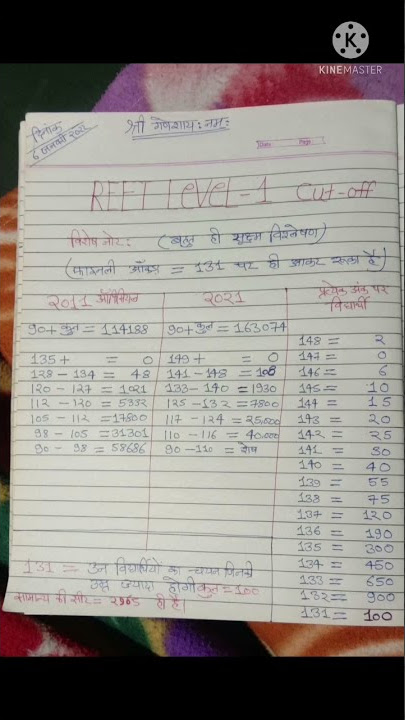 KINEMASTER
दिनांक
6 जनवरी
श्री गणेशाय: नम:
Date Page
REET Level-1 Cut-off
विशेष नोट: (बहुत ही सूक्ष्म विश्लेषण)
(फाइनली आँकड़ा = 131 पर ही आकर रुका है)
2011 ऑफिशियल
90+ कुल = 114188
135+ = 0
128-134 = 48
120-127 = 1021
112-120 = 5332
105-112 = 17800
98-105 = 31301
90-98 = 58686
2021
90+ कुल = 163074
149+ = 0
141-148 = 108
133-140 = 1930
125-132 = 7800
117-124 = 25,000
110-116 = 40,000
90-110 = शेष
प्रत्येक अंक पर
विद्यार्थी
148 = 2
147 = 0
146 = 6
145 = 10
144 = 15
143 = 20
142 = 25
141 = 30
140 = 40
139 = 55
138 = 75
137 = 120
136 = 190
135 = 300
134 = 450
133 = 650
132 = 900
131 = 100
131 = उन विद्यार्थियों का चयन जिनकी
उम्र ज्यादा होगी कुल = 100
सामान्य की सीट = 2965 ही है।